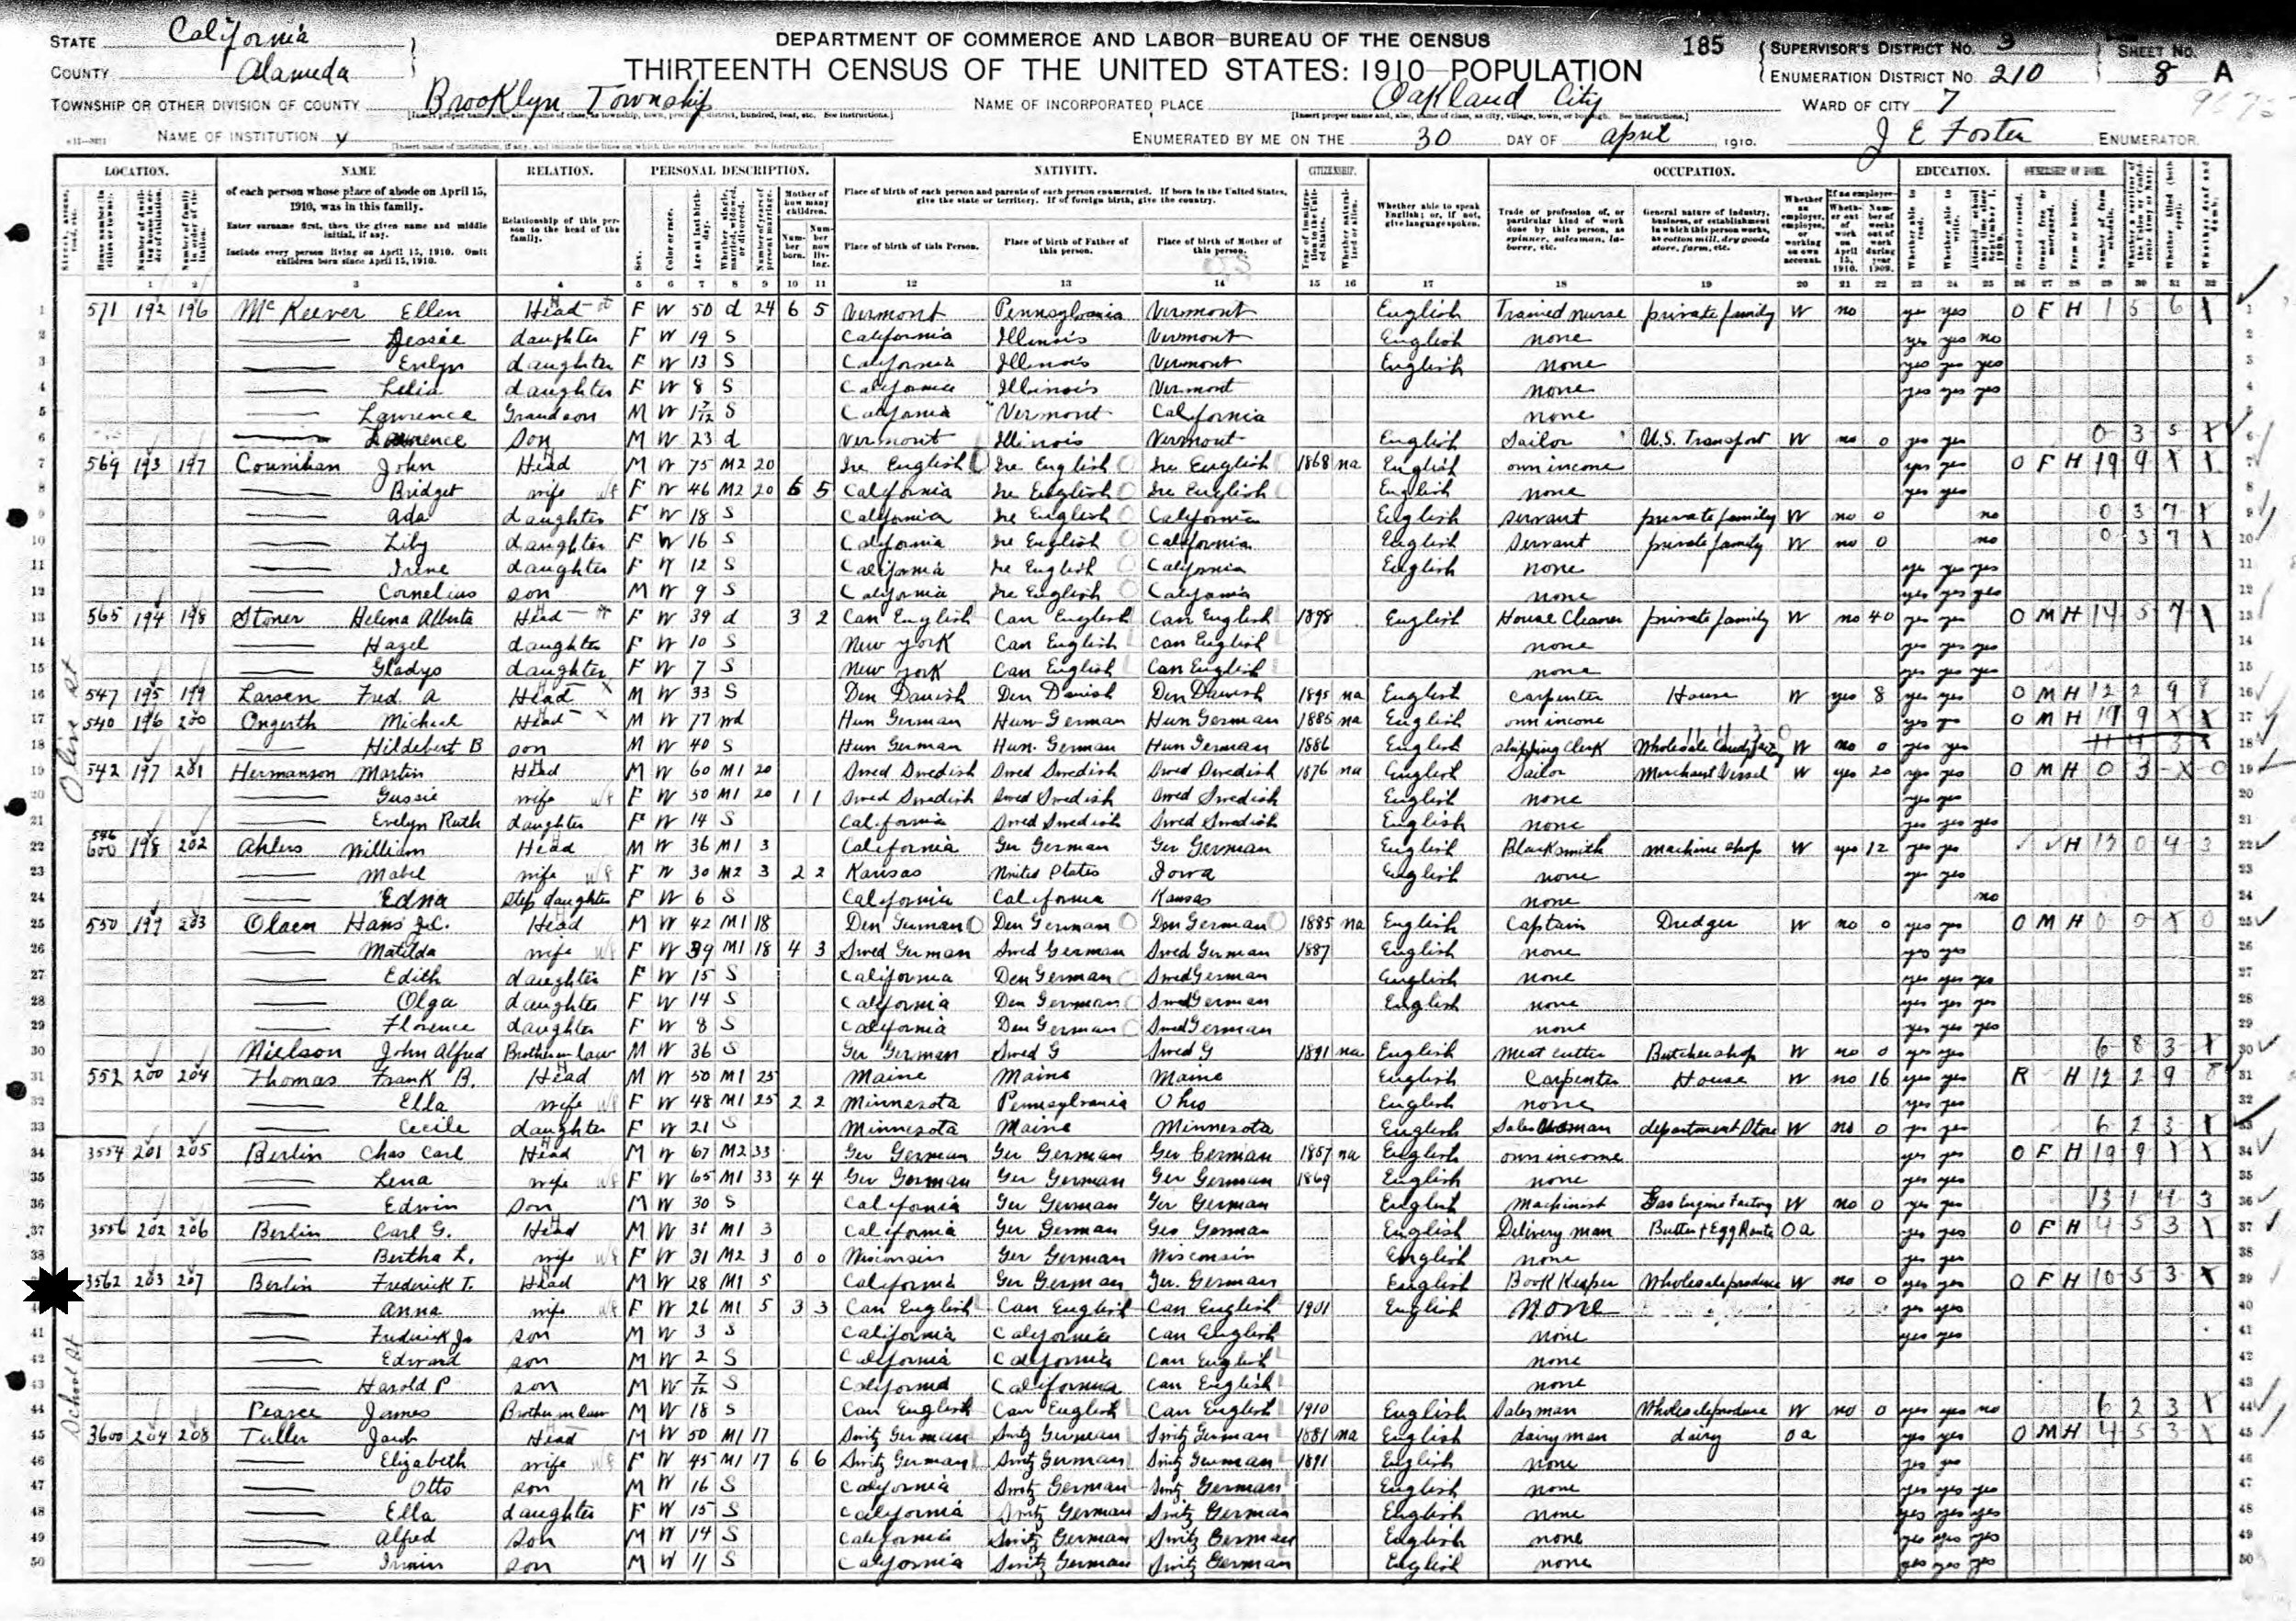 STATE California
DEPARTMENT OF COMMERCE AND LABOR—BUREAU OF THE CENSUS
185
SUPERVISOR'S DISTRICT No. 3
SHEET No.
COUNTY Alameda
THIRTEENTH CENSUS OF THE UNITED STATES: 1910—POPULATION
ENUMERATION DISTRICT No. 210
8 A
TOWNSHIP OR OTHER DIVISION OF COUNTY Brooklyn Township
NAME OF INCORPORATED PLACE Oakland City
WARD OF CITY 7
NAME OF INSTITUTION
ENUMERATED BY ME ON THE 30 DAY OF April, 1910.
J E Foster ENUMERATOR.
LOCATION. NAME RELATION. PERSONAL DESCRIPTION. NATIVITY. CITIZENSHIP. OCCUPATION. EDUCATION. OWNERSHIP OF HOME.
of each person whose place of abode on April 15, 1910, was in this family.
Enter surname first, then the given name and middle initial, if any.
Include every person living on April 15, 1910. Omit children born since April 15, 1910.
Relationship of this person to the head of the family.
Place of birth of each person and parents of each person enumerated. If born in the United States, give the state or territory. If of foreign birth, give the country.
Place of birth of this Person. Place of birth of Father of this person. Place of birth of Mother of this person.
Whether able to speak English; or, if not, give language spoken.
Trade or profession of, or particular kind of work done by this person, as spinner, salesman, laborer, etc.
General nature of industry, business, or establishment in which this person works, as cotton mill, dry goods store, farm, etc.
1 2 3 4 5 6 7 8 9 10 11 12 13 14 15 16 17 18 19 20 21 22 23 24 25 26 27 28 29 30 31 32
Olive St
1 571 192 196 McKeever Ellen Head F W 50 d 24 6 5 Vermont Pennsylvania Vermont English Trained nurse private family W no yes yes O F H 1 5 6 X
2 Jessie daughter F W 19 S California Illinois Vermont English none yes yes no
3 Evelyn daughter F W 13 S California Illinois Vermont English none yes yes yes
4 Lelia daughter F W 8 S California Illinois Vermont none yes yes yes
5 Lawrence Grandson M W 1 7/12 S California Vermont California none
6 Lawrence Son M W 23 d Vermont Illinois Vermont English Sailor U.S. Transport W no 0 yes yes 0 3 5 X
7 569 193 197 Counihan John Head M W 75 M2 20 Ire English Ire English Ire English 1868 na English own income yes yes O F H 19 9 X X
8 Bridget wife F W 46 M2 20 6 5 California Ire English Ire English English none yes yes
9 Ada daughter F W 18 S California Ire English California English servant private family W no 0 no 0 3 7 X
10 Lily daughter F W 16 S California Ire English California English Servant private family W no 0 no 0 3 7 X
11 Irene daughter F W 12 S California Ire English California English none yes yes yes
12 Cornelius son M W 9 S California Ire English California none yes yes yes
13 565 194 198 Stoner Helena Alberta Head F W 39 d 3 2 Can English Can English Can English 1898 English House Cleaner private family W no 40 yes yes O M H 14 5 7 X
14 Hazel daughter F W 10 S New York Can English Can English none yes yes yes
15 Gladys daughter F W 7 S New York Can English Can English none yes yes yes
16 547 195 199 Larsen Fred A Head M W 33 S Den Danish Den Danish Den Danish 1895 na English Carpenter House W yes 8 yes yes O M H 12 2 9 8
17 540 196 200 Ongerth Michael Head M W 77 wd Hun German Hun German Hun German 1885 na English own income yes yes O M H 19 9 X X
18 Hildebert B son M W 40 S Hun German Hun German Hun German 1886 English shipping clerk Wholesale W no 0 yes yes
19 542 197 201 Hermanson Martin Head M W 60 M1 20 Swed Swedish Swed Swedish Swed Swedish 1876 na English Sailor Merchant Vessel W yes 20 yes yes O M H 0 3 X 0
20 Gussie wife F W 50 M1 20 1 1 Swed Swedish Swed Swedish Swed Swedish English none yes yes
21 Evelyn Ruth daughter F W 14 S California Swed Swedish Swed Swedish English none yes yes yes
22 546 600 198 202 Ahlers William Head M W 36 M1 3 California Ger German Ger German English Blacksmith machine shop W yes 12 yes yes H 13 0 4 3
23 Mabel wife F W 30 M2 3 2 2 Kansas United States Iowa English none yes yes
24 Edna step daughter F W 6 S California California Kansas none no
25 550 199 203 Olsen Hans J.C. Head M W 42 M1 18 Den German Den German Den German 1885 na English Captain Dredger W no 0 yes yes O M H 0 0 X 0
26 Matilda wife F W 39 M1 18 4 3 Swed German Swed German Swed German 1887 English none yes yes
27 Edith daughter F W 15 S California Den German Swed German English none yes yes yes
28 Olga daughter F W 14 S California Den German Swed German English none yes yes yes
29 Florence daughter F W 8 S California Den German Swed German none yes yes yes
30 Nielson John Alfred Brother in law M W 36 S Ger German Swed G Swed G 1891 na English meat cutter Butcher shop W no 0 yes yes 6 8 3 X
31 552 200 204 Thomas Frank B. Head M W 50 M1 25 Maine Maine Maine English Carpenter House W no 16 yes yes R H 12 2 9 8
32 Ella wife F W 48 M1 25 2 2 Minnesota Pennsylvania Ohio English none yes yes
33 Cecile daughter F W 21 S Minnesota Maine Minnesota English Saleswoman department Store W no 0 yes yes 6 2 3 X
School St
34 3554 201 205 Berlin Chas Carl Head M W 67 M2 33 Ger German Ger German Ger German 1857 na English own income yes yes O F H 19 9 X X
35 Lena wife F W 65 M1 33 4 4 Ger German Ger German Ger German 1869 English none yes yes
36 Edwin Son M W 30 S California Ger German Ger German English Machinist Gas Engine Factory W no 0 yes yes 13 1 4 3
37 3556 202 206 Berlin Carl G. Head M W 31 M1 3 California Ger German Ger German English Delivery man Butter + Egg Route Oa yes yes O F H 4 5 3 X
38 Bertha L. wife F W 31 M2 3 0 0 Wisconsin Ger German Wisconsin English none yes yes
39 3562 203 207 Berlin Frederick T. Head M W 28 M1 5 California Ger German Ger. German English Book Keeper Wholesale produce W no 0 yes yes O F H 10 5 3 X
40 Anna wife F W 26 M1 5 3 3 Can English Can English Can English 1901 English None yes yes
41 Frederick Jr son M W 3 S California California Can English none yes yes
42 Edward son M W 2 S California California Can English none
43 Harold P son M W 7/12 S California California Can English none
44 Pearce James Brother in law M W 18 S Can English Can English Can English 1910 English Salesman Wholesale produce W no 0 yes yes no 6 2 3 X
45 3600 204 208 Tuller Jacob Head M W 50 M1 17 Switz German Switz German Switz German 1881 na English dairyman dairy oa yes yes O M H 4 5 3 X
46 Elizabeth wife F W 45 M1 17 6 6 Switz German Switz German Switz German 1891 English none yes yes
47 Otto son M W 16 S California Switz German Switz German English none yes yes yes
48 Ella daughter F W 15 S California Switz German Switz German English none yes yes yes
49 Alfred Son M W 14 S California Switz German Switz German English none yes yes yes
50 Irwin son M W 11 S California Switz German Switz German English none yes yes yes